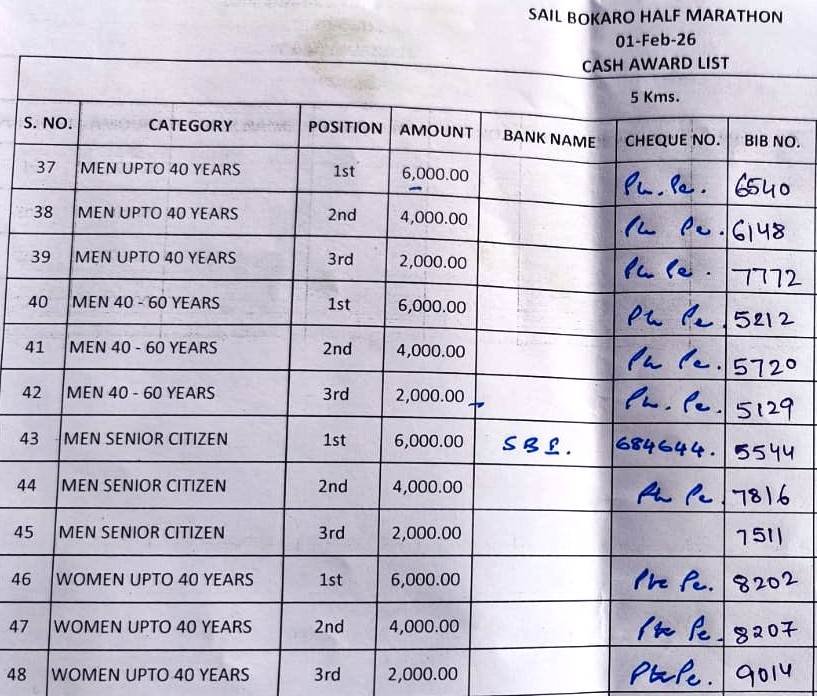 SAIL BOKARO HALF MARATHON
01-Feb-26
CASH AWARD LIST
5 Kms.
S. NO. CATEGORY POSITION AMOUNT BANK NAME CHEQUE NO. BIB NO.
37 MEN UPTO 40 YEARS 1st 6,000.00 Ph. Pe. 6540
38 MEN UPTO 40 YEARS 2nd 4,000.00 Ph Pe. 6148
39 MEN UPTO 40 YEARS 3rd 2,000.00 Ph Pe. 7772
40 MEN 40 - 60 YEARS 1st 6,000.00 Ph Pe. 5212
41 MEN 40 - 60 YEARS 2nd 4,000.00 Ph Pe. 5720
42 MEN 40 - 60 YEARS 3rd 2,000.00 Ph. Pe. 5129
43 MEN SENIOR CITIZEN 1st 6,000.00 SBI. 684644. 5544
44 MEN SENIOR CITIZEN 2nd 4,000.00 Ph Pe. 7816
45 MEN SENIOR CITIZEN 3rd 2,000.00 7511
46 WOMEN UPTO 40 YEARS 1st 6,000.00 Pe. 8202
47 WOMEN UPTO 40 YEARS 2nd 4,000.00 Pe. 8207
48 WOMEN UPTO 40 YEARS 3rd 2,000.00 Pe. 9014